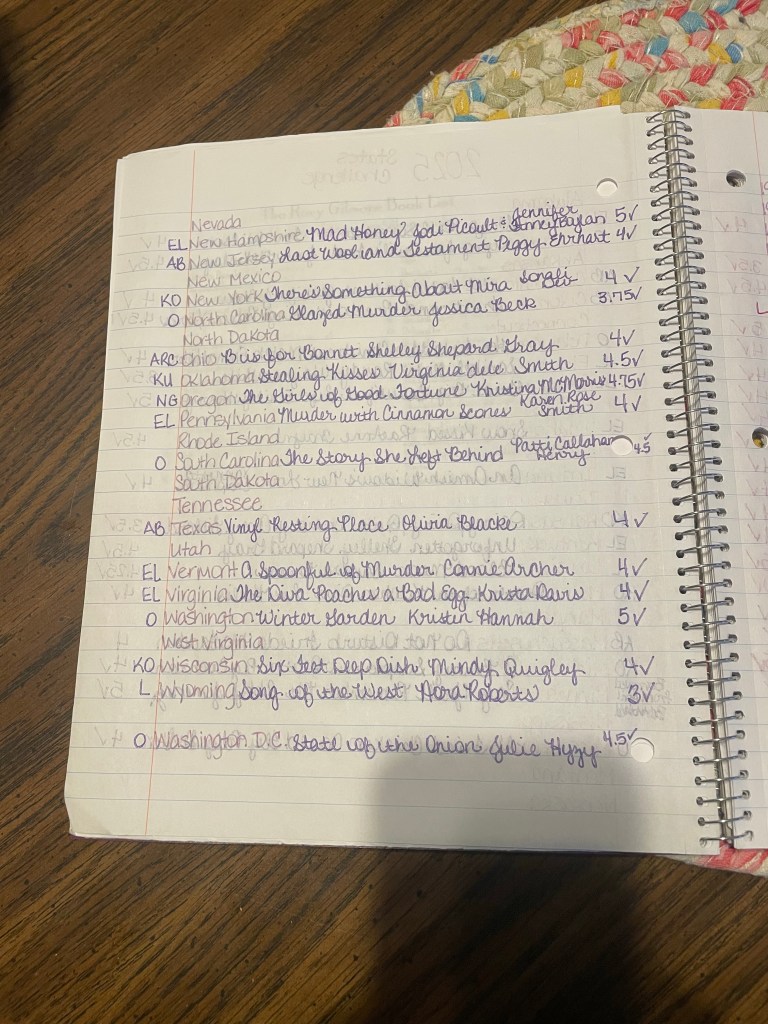 Nevada
EL New Hampshire "Mad Honey" Jodi Picoult & Jennifer Finney Boylan 5✓
AB New Jersey Last Wool and Testament Peggy Ehrhart 4✓
New Mexico
KO New York There's Something About Mira Sonali Dev 4 ✓
O North Carolina Glazed Murder Jessica Beck 3.75✓
North Dakota
ARC Ohio B is for Bonnet Shelley Shepard Gray 4✓
KU Oklahoma Stealing Kisses Virginia'dele Smith 4.5✓
NG Oregon The Girls of Good Fortune Kristina McMorris 4.75✓
EL Pennsylvania Murder with Cinnamon Scones Karen Rose Smith 4✓
Rhode Island
O South Carolina The Story She Left Behind Patti Callahan Henry 4.5✓
South Dakota
Tennessee
AB Texas Vinyl Resting Place Olivia Blacke 4✓
Utah
EL Vermont A Spoonful of Murder Connie Archer 4✓
EL Virginia The Diva Poaches a Bad Egg Krista Davis 4✓
O Washington Winter Garden Kristin Hannah 5✓
West Virginia
KO Wisconsin Six Feet Deep Dish Mindy Quigley 4✓
L Wyoming Song of the West Nora Roberts 3✓
O Washington D.C. State of the Onion Julie Hyzy 4.5✓